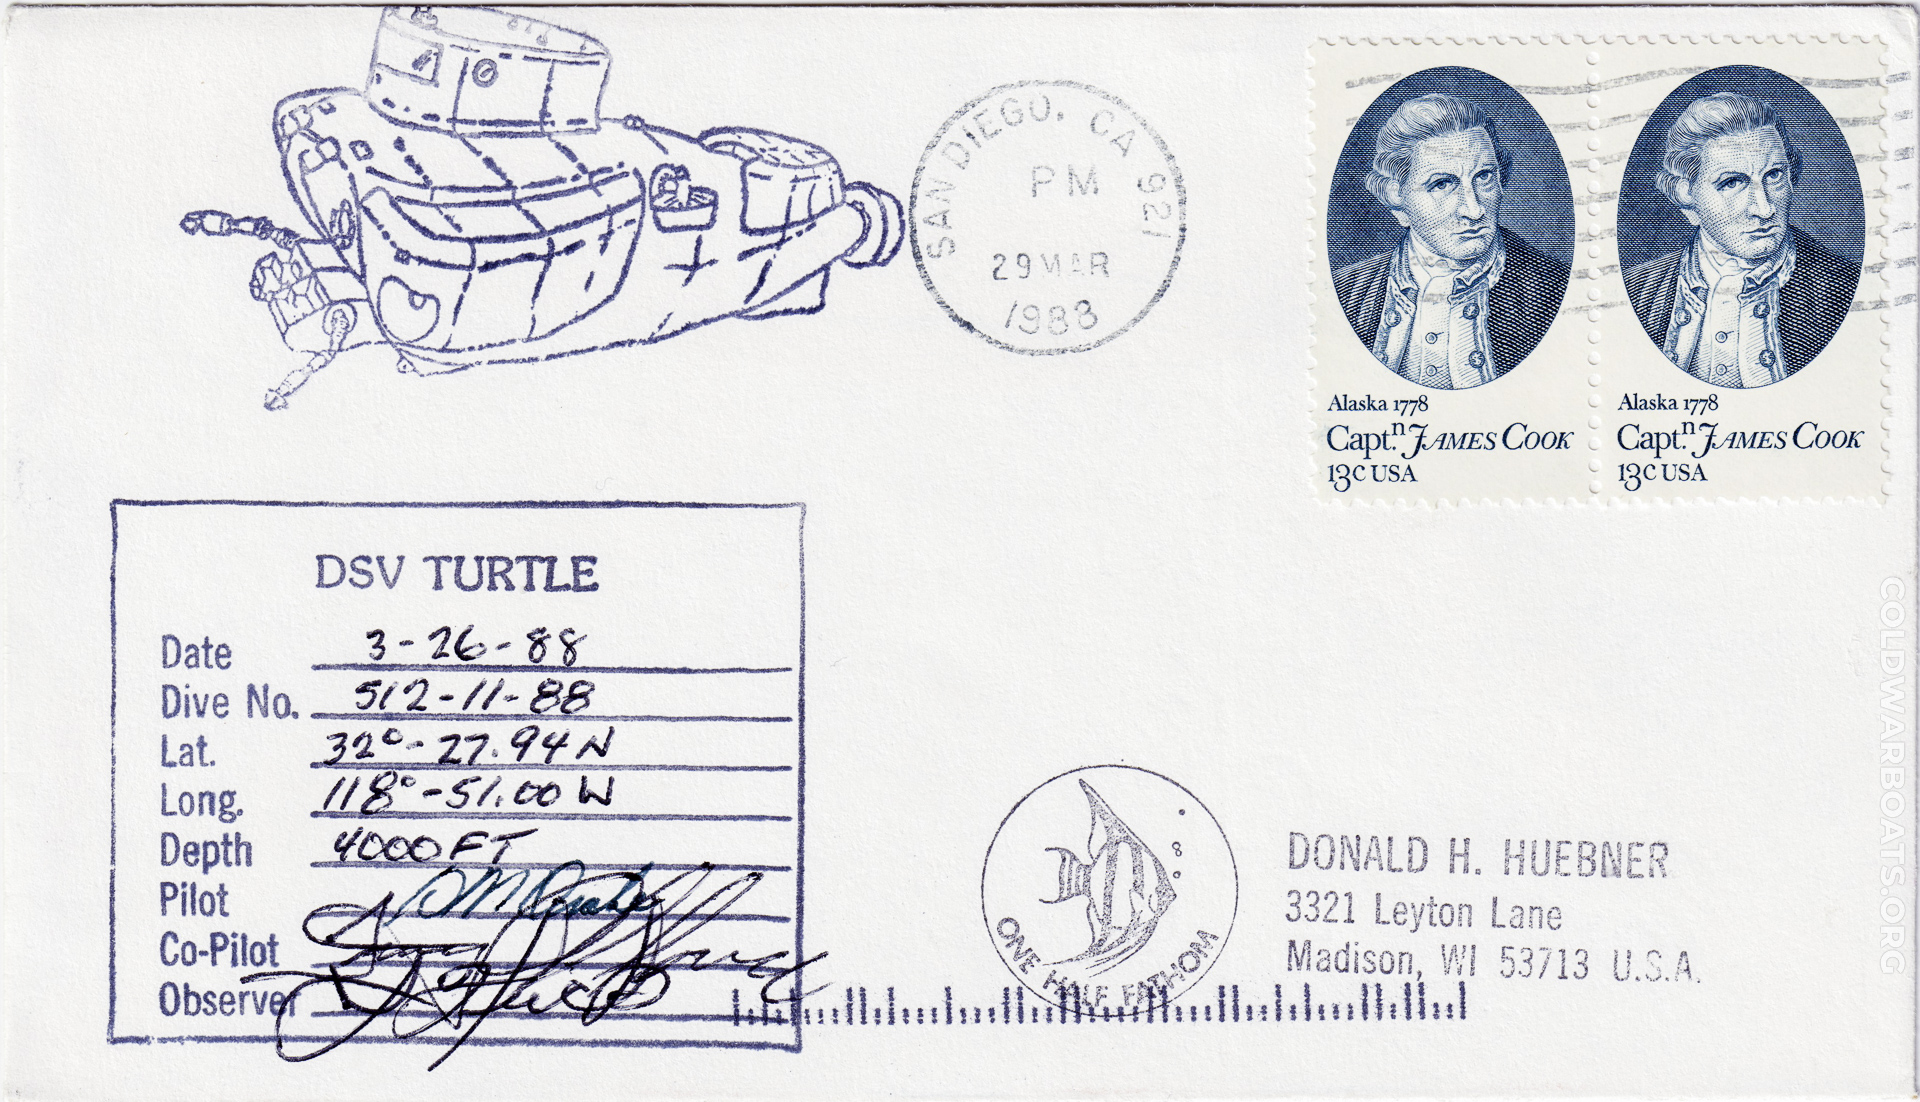 SAN DIEGO, CA 921
PM
29 MAR
1988
Alaska 1778
Capt.n JAMES COOK
13c USA
Alaska 1778
Capt.n JAMES COOK
13c USA
DSV TURTLE
Date 3-26-88
Dive No. 512-11-88
Lat. 32°-27.94 N
Long. 118°-51.00 W
Depth 4000 FT
Pilot
Co-Pilot
Observer
ONE HALF FATHOM
DONALD H. HUEBNER
3321 Leyton Lane
Madison, WI 53713 U.S.A.
COLDWARBOATS.ORG